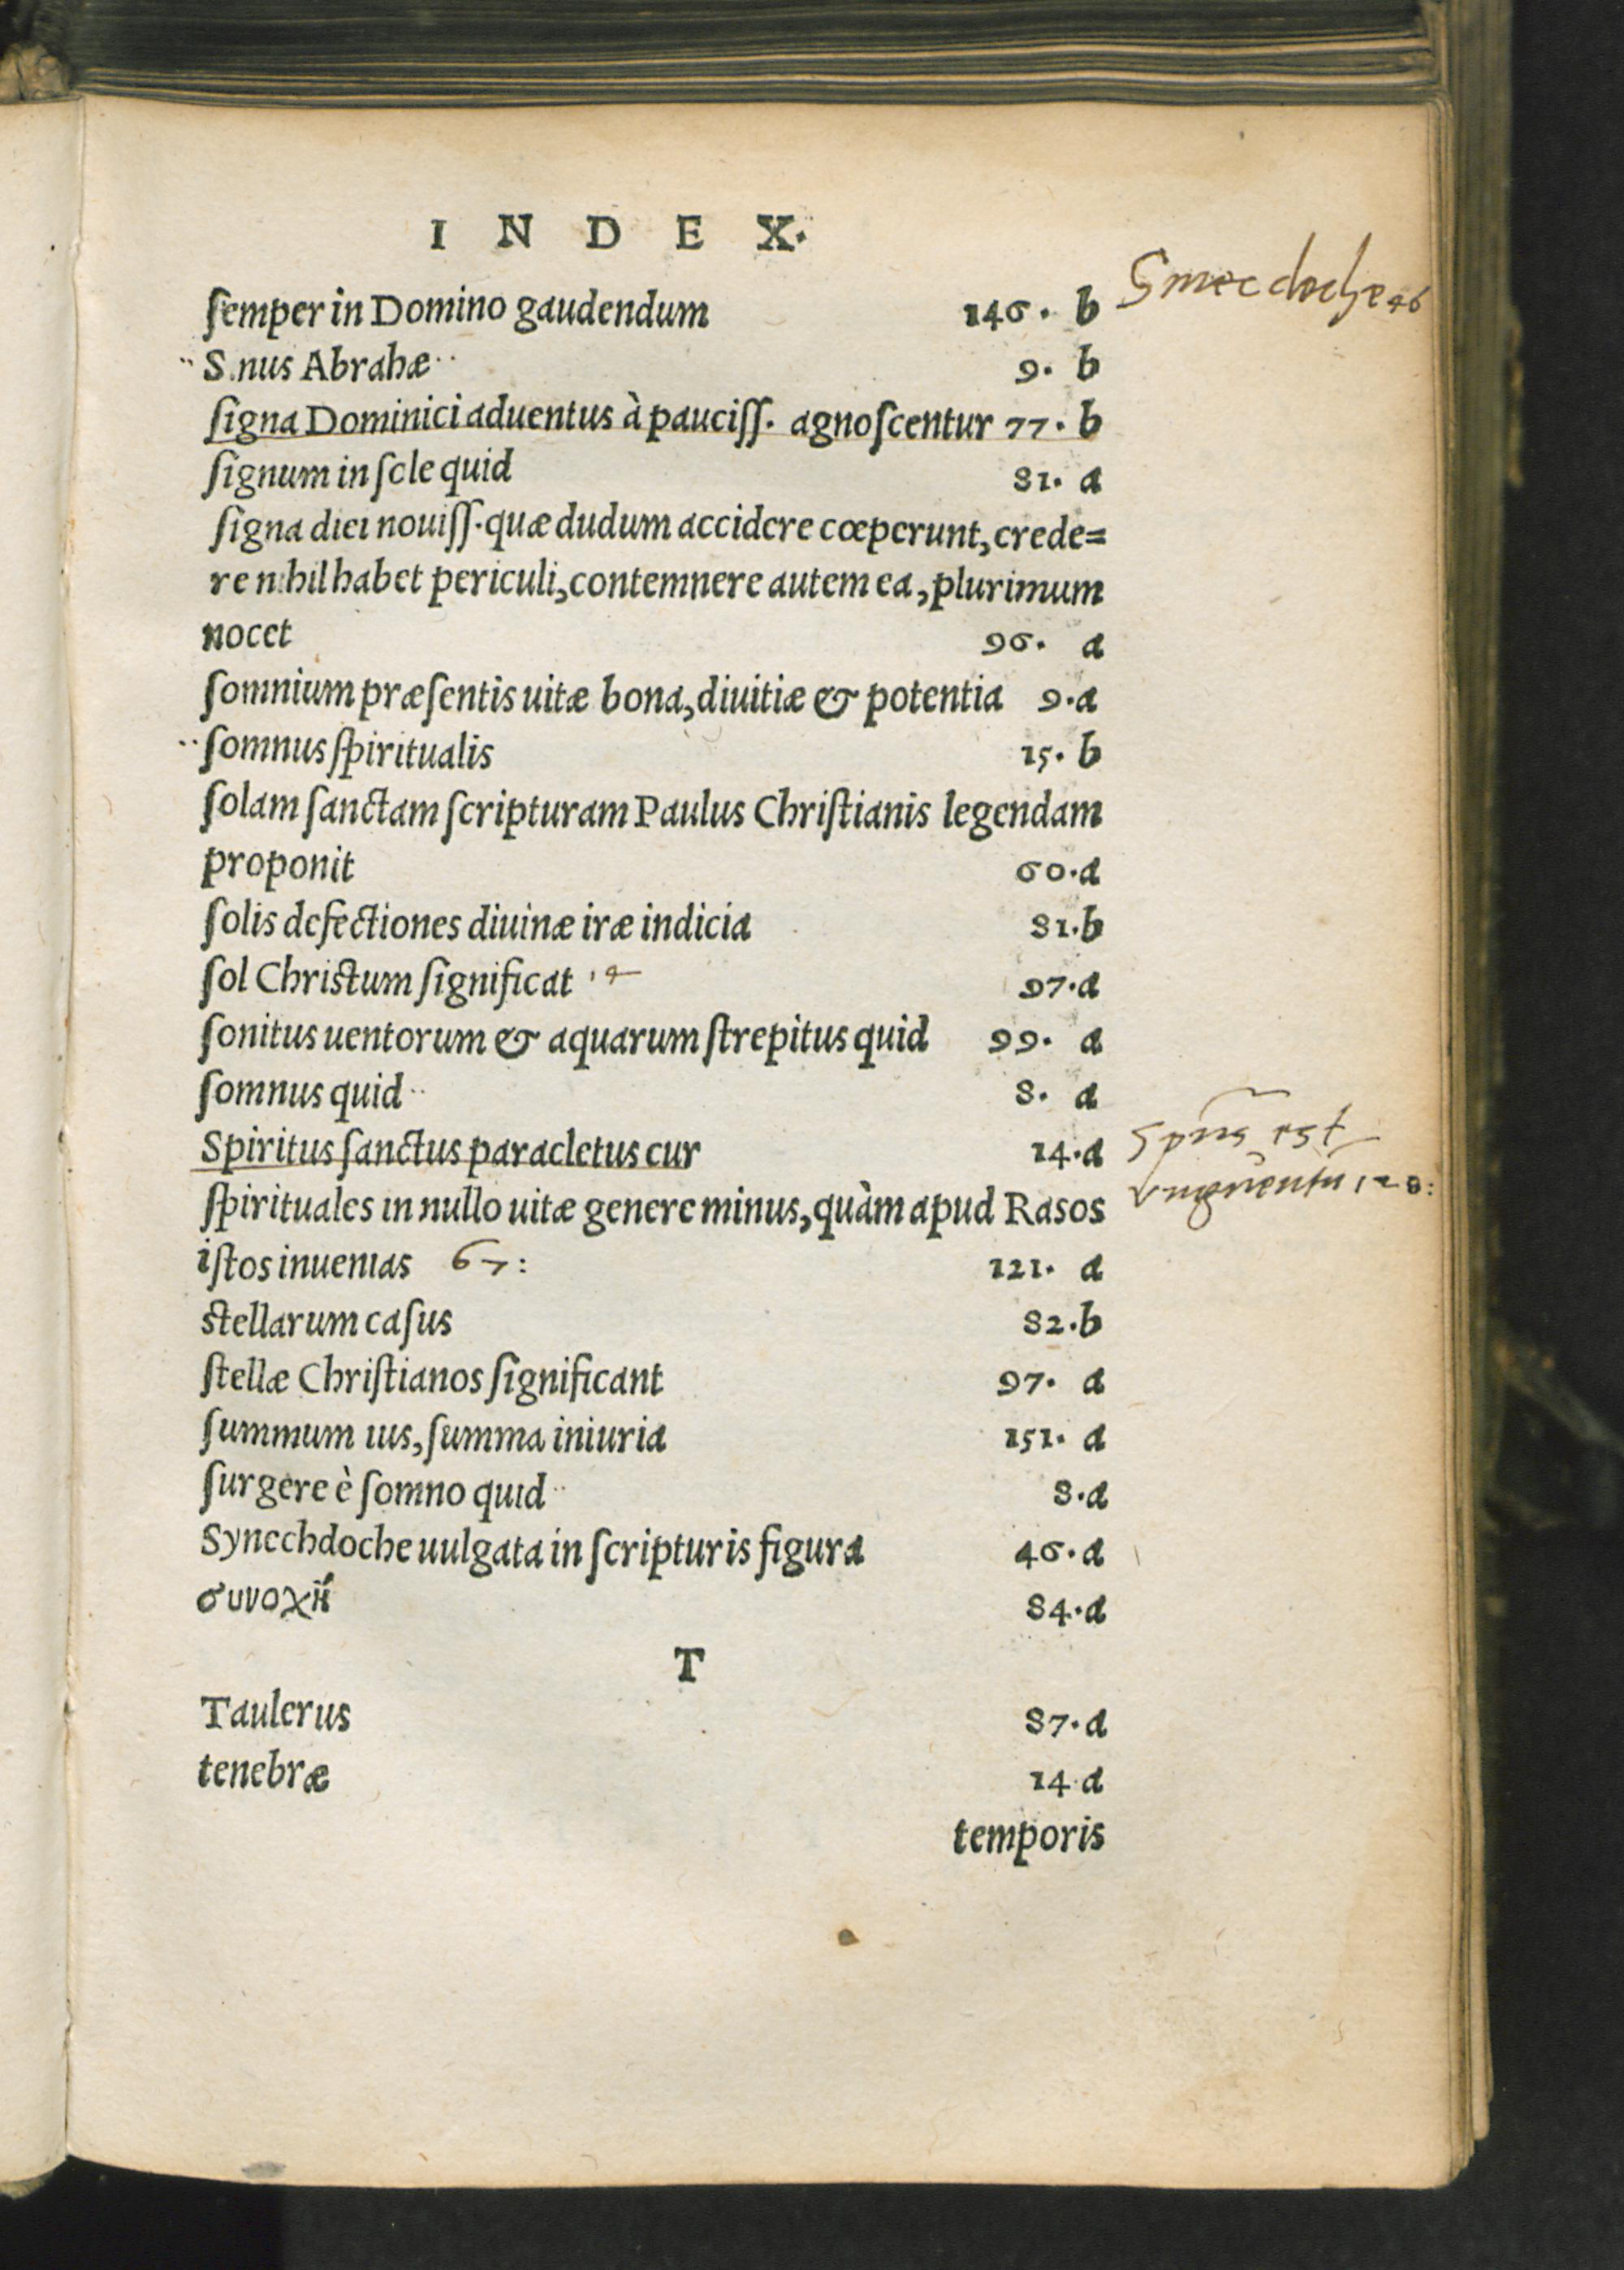 INDEX.
semper in Domino gaudendum 146. b
Smecdoche 46
S.nus Abrahæ 9. b
signa Dominici aduentus à pauciss. agnoscentur 77. b
signum in sole quid 81. a
signa diei nouiss. quæ dudum accidere cœperunt, crede=
re nihil habet periculi, contemnere autem ea, plurimum
nocet 96. a
somnium præsentis uitæ bona, diuitiæ & potentia 9. a
somnus spiritualis 15. b
solam sanctam scripturam Paulus Christianis legendam
proponit 60. a
solis defectiones diuinæ iræ indicia 81. b
sol Christum significat 97. a
sonitus uentorum & aquarum strepitus quid 99. a
somnus quid 8. a
Spiritus sanctus paracletus cur 14. a
spũs est
spirituales in nullo uitæ genere minus, quàm apud Rasos
istos inuenias 67: 121. a
stellarum casus 82. b
stellæ Christianos significant 97. a
summum ius, summa iniuria 151. a
surgere è somno quid 8. a
Synechdoche uulgata in scripturis figura 46. a
συνοχή 84. a
T
Taulerus 87. a
tenebræ 14 a
temporis